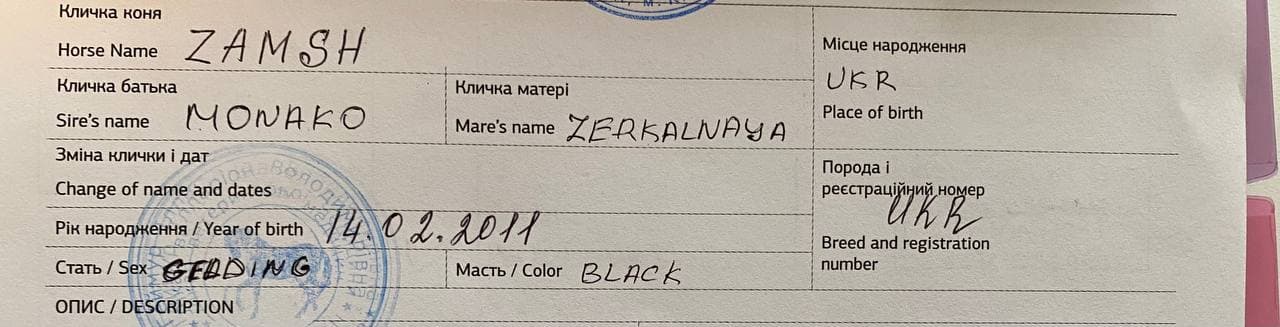 Кличка коня
Horse Name ZAMSH
Місце народження
UKR
Place of birth
Кличка батька
Sire's name MONAKO
Кличка матері
Mare's name ZERKALNAYA
Зміна клички і дат
Change of name and dates
Порода і
реєстраційний номер
UKR
Breed and registration
number
Рік народження / Year of birth 14.02.2011
Стать / Sex GELDING
Масть / Color BLACK
ОПИС / DESCRIPTION